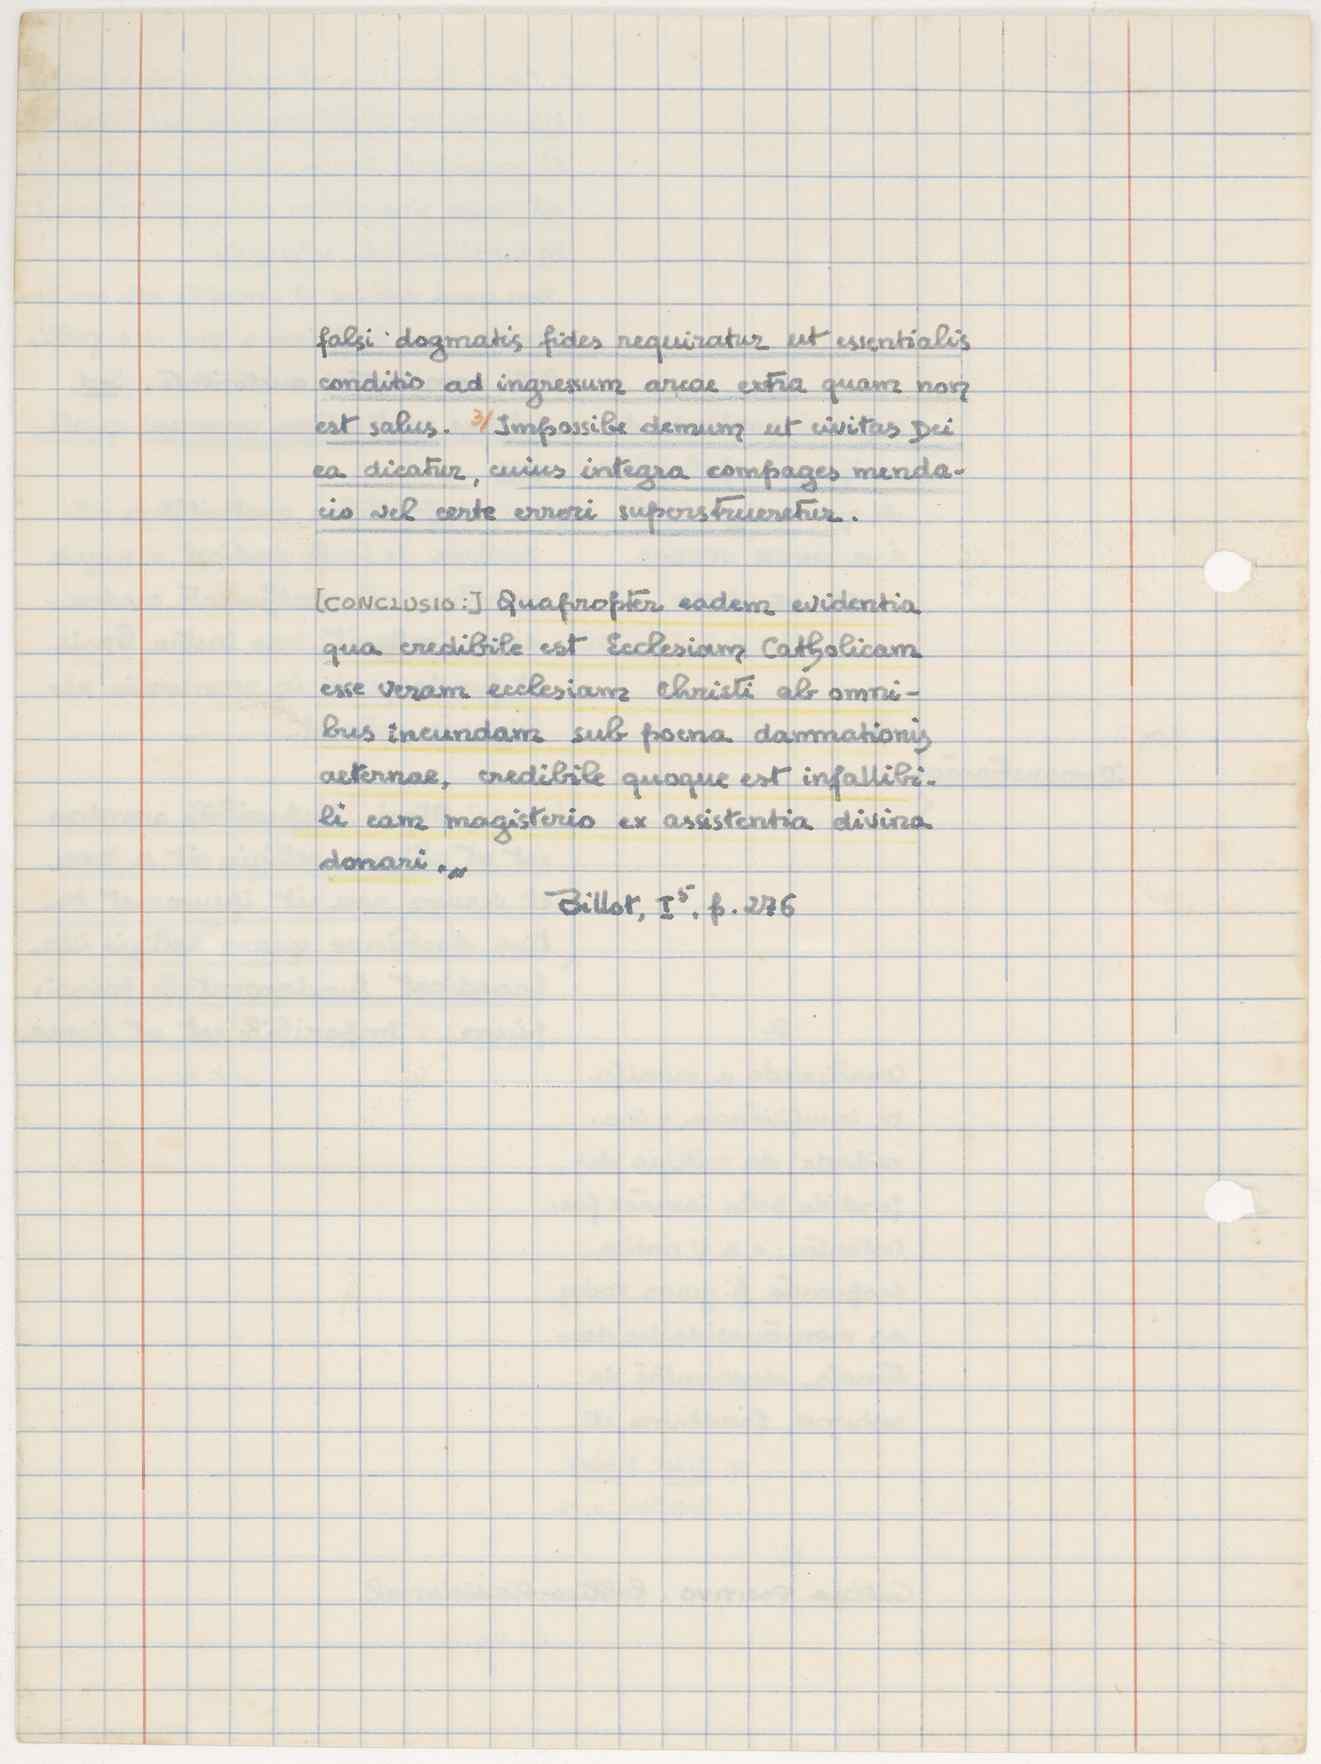 falsi dogmatis fides requiratur ut essentialis
conditio ad ingressum arcae extra quam non
est salus. 3/ Impossibe demum ut civitas Dei
ea dicatur, cuius integra compages menda-
cio vel certe errori superstrueretur.
[CONCLUSIO:] Quapropter eadem evidentia
qua credibile est Ecclesiam Catholicam
esse veram ecclesiam Christi ab omni-
bus ineundam sub poena damnationis
aeternae, credibile quoque est infallibi-
li eam magisterio ex assistentia divina
donari."
Billot, I⁵, p. 276